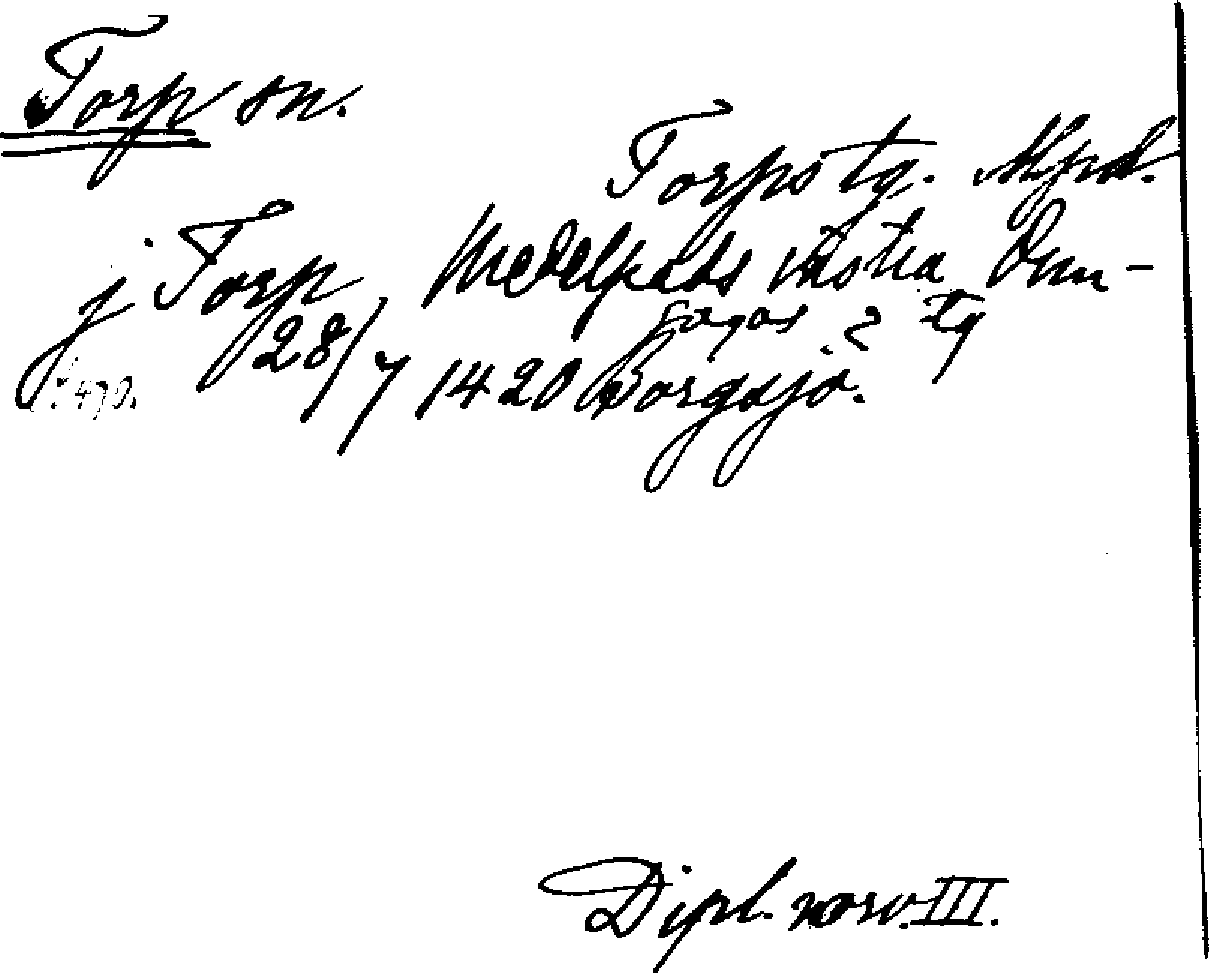 Torp sn.
Torps tg. Mpd.
j Torp, Medelpads västra Dom-
sagas. 2 tg
28/7 1420 Borgsjö.
s. 470.
Dipl. norv. III.